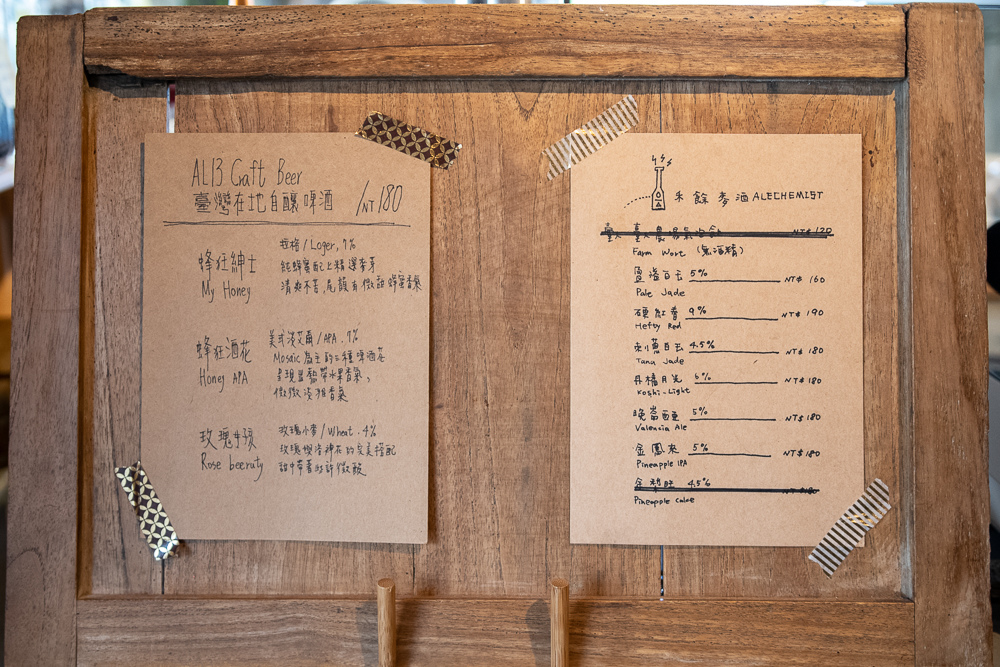 AL13 Craft Beer
臺灣在地自釀啤酒 /NT 180
蜂狂紳士
My Honey
拉格/Lager, 7%
純蜂蜜配上精選麥芽
清爽不苦,尾韻有微甜蜂蜜香氣
蜂狂酒花
Honey APA
美式淡艾爾/APA. 7%
Mosaic為主的三種啤酒花
呈現豐藍帶水果香氣,
微微淡雅香氣
玫瑰
Rose beeruty
玫瑰小麥/Wheat. 4%
玫瑰櫻洛神花的完美搭配
甜中帶著些許微酸
禾餘麥酒 ALECHEMIST
NT$ 120
Farm Wort (無酒精)
白玉 5% NT$ 160
Pale Jade
硬紅香 9% NT$ 190
Hefty Red
刺蔥白玉 4.5% NT$ 180
Tana Jade
月光 6% NT$ 180
Koshi-Light
晚崙西亞 5% NT$ 180
Valencia Ale
金鳳來 5% NT$ 180
Pineapple IPA
4.5% NT$ 180
Pineapple Cake